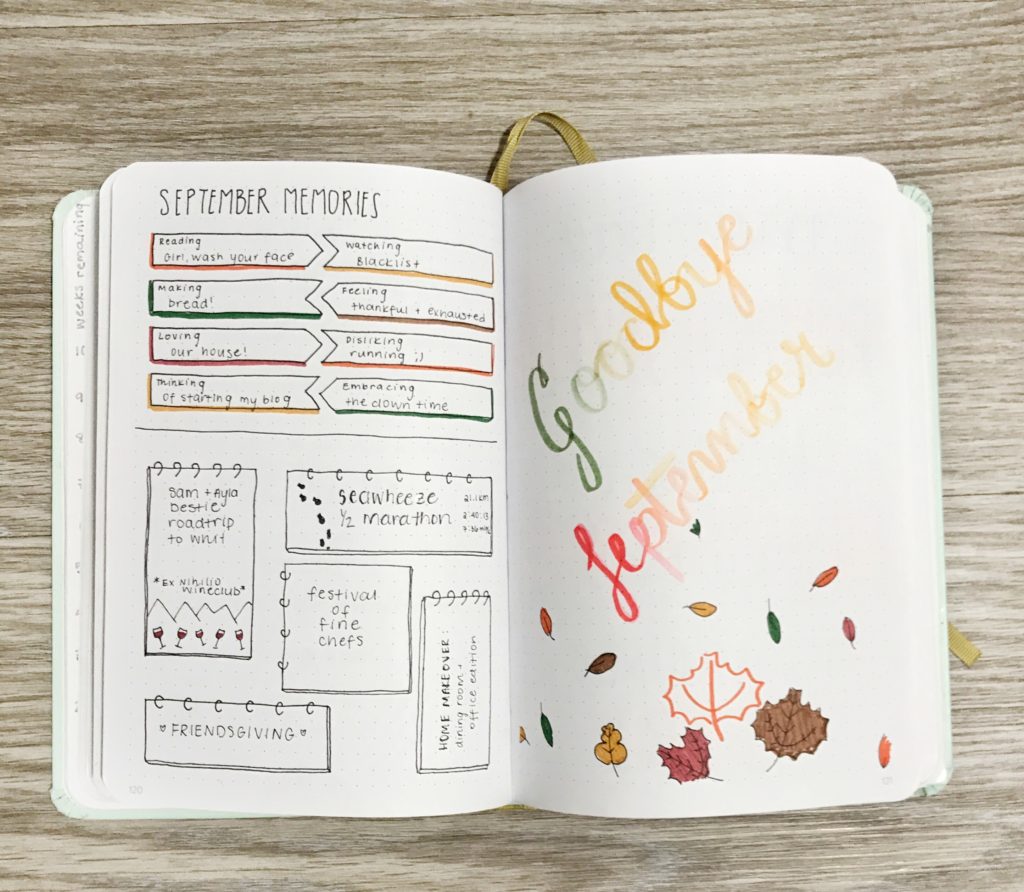 SEPTEMBER MEMORIES
Reading
Girl, wash your face
Watching
Blacklist
Making
bread!
Feeling
thankful + exhausted
Loving
our house!
Disliking
running ;)
Thinking
of starting my blog
Embracing
the down time
Sam + Ayla
bestie
roadtrip
to whit
*Ex Nihilio
wineclub*
seawheeze
1/2 marathon
21.1 km
2:40:13
festival
of
fine
chefs
HOME MAKEOVER:
dining room +
office edition
FRIENDSGIVING
120
Goodbye
September
121
weeks remaining
10
9
8